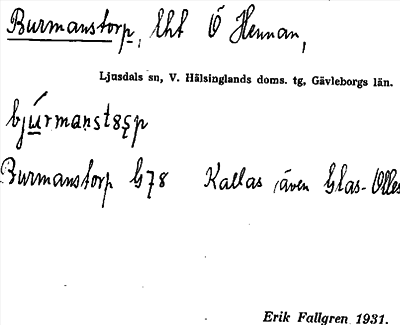 Burmanstorp, tht Ö Hennan,
Ljusdals sn, V. Hälsinglands doms. tg, Gävleborgs län.
Burmanstorp G78 Kallas även Glas-Olles
Erik Fallgren 1931.